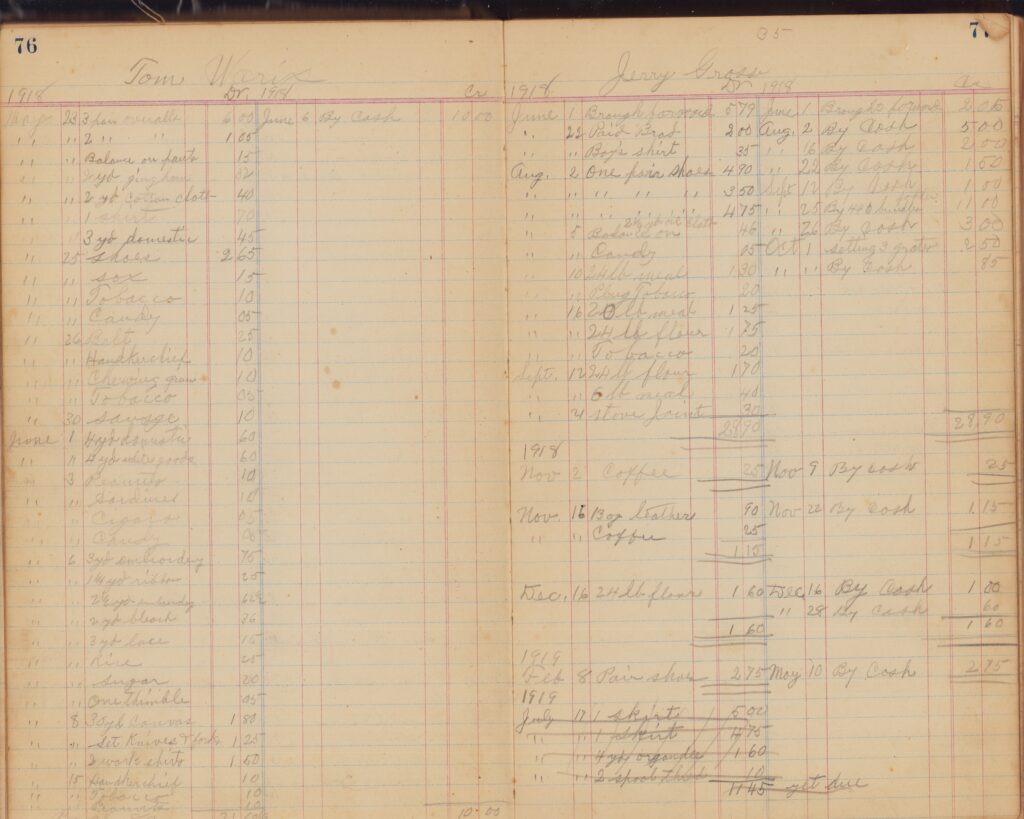 76
Tom
1918 Dr. 1918 Cr
23 3 pair overalls 6 00 June 6 By Cash 10 00
" " 2 " " 1 05
" " Balance on pants 15
" " 2 yd gingham
" " 2 yd cotton cloth 40
" " 1 shirt 70
3 yd domestic 45
" 25 shoes 2 65
" " sox 15
" " Tobacco 10
" " Candy 05
" 26 Belt 25
" " Handkerchief 10
" " Chewing gum 10
" " Tobacco 05
" 30 10
June 1 4 yd domestic 60
" " 4 yd white goods 60
" 3 Peanuts 10
" " Sardines 10
" " Cigars 05
" " Candy
" 6 3 yd embroidery 75
" " ribbon 25
" "
" " 2 yd bleach 36
" " 3 yd lace 15
" " Rice 25
" " Sugar 20
" " One thimble 05
" 8 canvas 1 80
" " Set Knives & forks 1 25
" " 2 work shirts 1 50
" 15 Handkerchief 10
" " Tobacco 10
10 00
35
Jerry Gross
1918 Dr 1918 Cr
June 1 Brough forward 5 79 June 1 Brought forward
" 22 Paid Brad 2 00 Aug. 2 By Cash 5 00
" " Boy's shirt 35 " 16 By Cash 2 00
Aug. 2 One pair shoes 4 90 " 22 By Cash
" " " " " 3 50 Sept 12 By Cash 1 00
" " " 4 75 " 25 By 440 11 00
" 5 Balance on 46 " 26 By Cash 3 00
" " Candy 05 Oct 1 setting 3 grates 2 50
" 10 24 lb meal 1 30 " " By Cash 85
" " Plug Tobacco 20
" 16 20 lb meal 1 25
" " 24 lb flour 1 75
" " Tobacco 20
Sept. 12 24 lb flour 1 70
" " 6 lb meal 40
" 4 stove joint 30
28 90 28,90
1918
Nov 2 Coffee 25 Nov 9 By cash 25
Nov. 16 leather 90 Nov 22 By Cash 1 15
" " Coffee 25
1 15 1 15
Dec. 16 24 lb flour 1 60 Dec 16 By Cash 1 00
" 28 By Cash 60
1 60 1 60
1919
Feb 8 Pair shoes 2 75 May 10 By Cash 2 75
1919
July 17 1 skirt 5 00
" " 1 skirt 4 75
" " 4 yd organdie 1 60
" " 2 spool thd 10
11 45 yet due